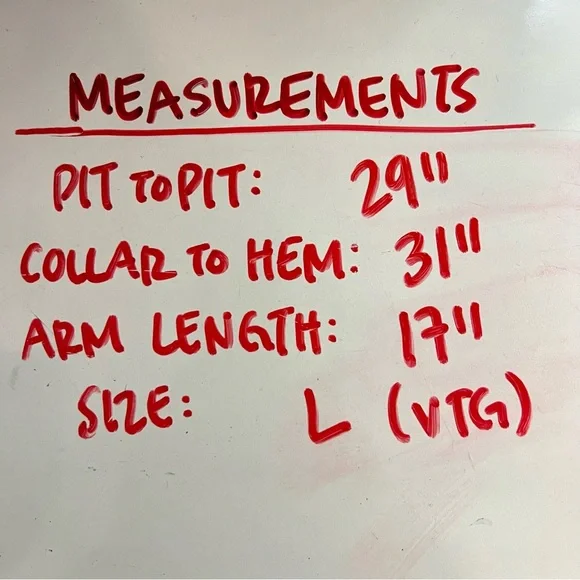 MEASUREMENTS
PIT TO PIT: 29"
COLLAR TO HEM: 31"
ARM LENGTH: 17"
SIZE: L (VTG)